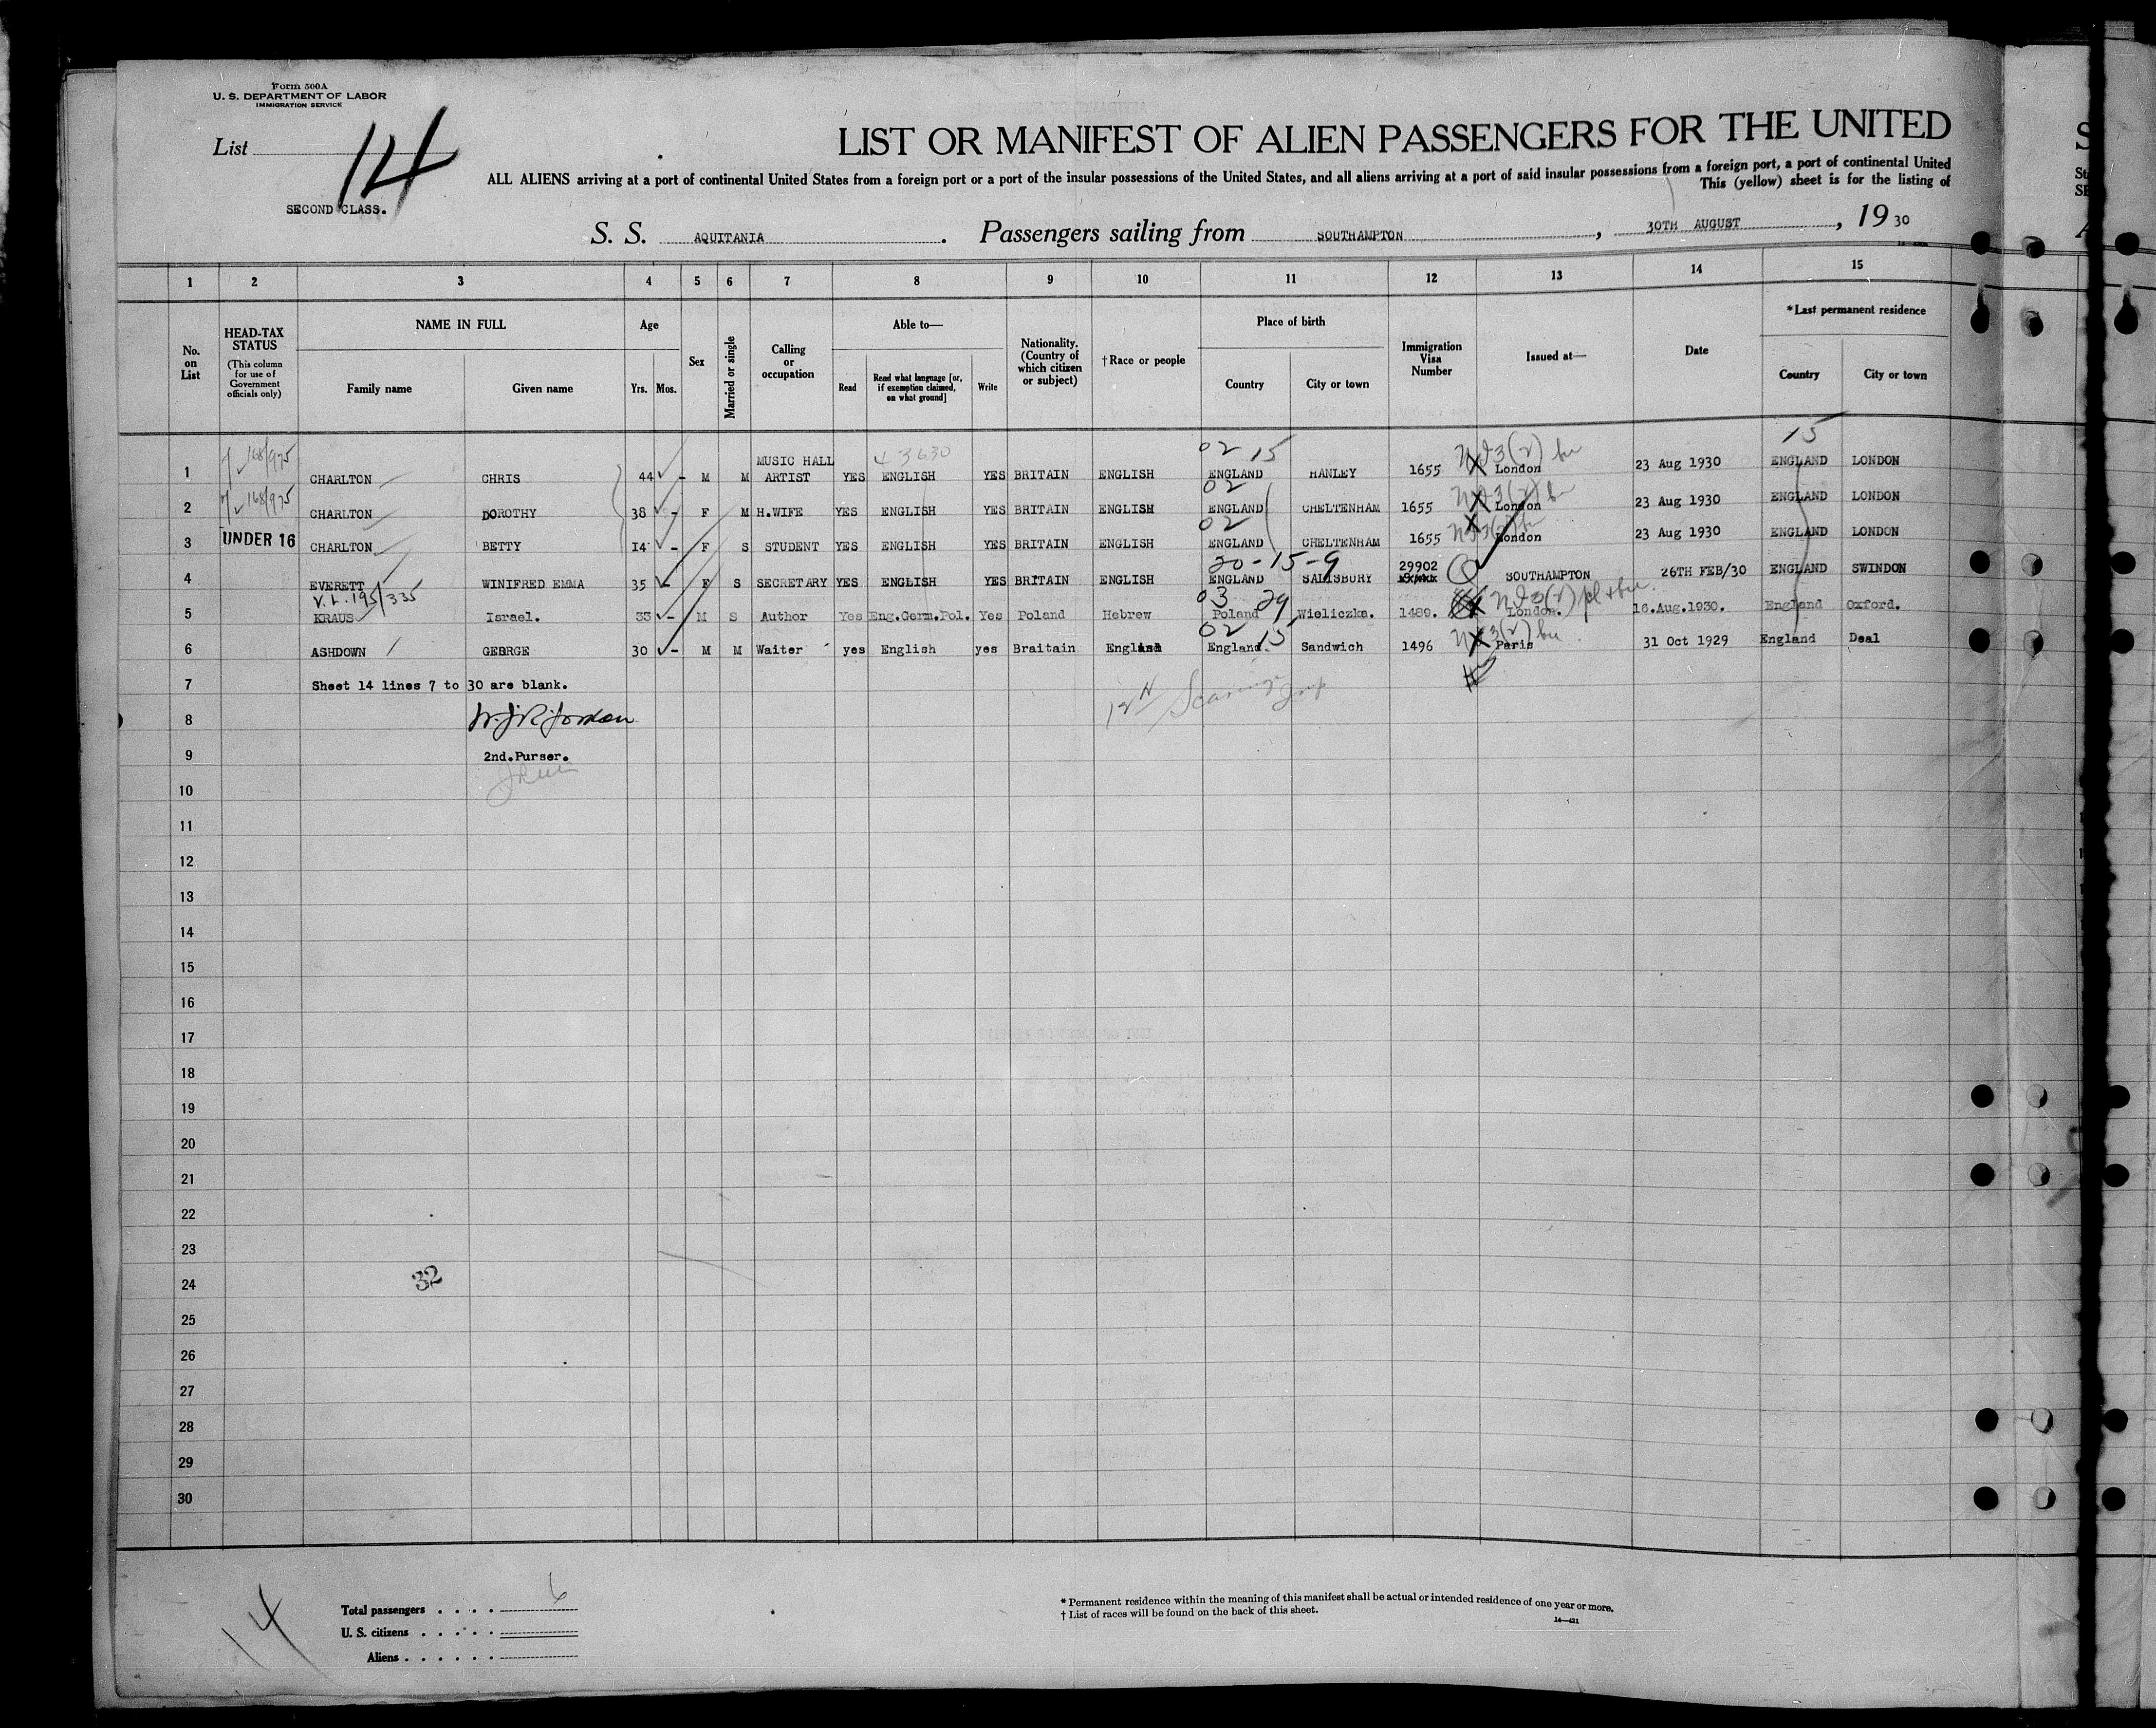 Form 500A
U. S. DEPARTMENT OF LABOR
IMMIGRATION SERVICE
List 14
SECOND CLASS.
LIST OR MANIFEST OF ALIEN PASSENGERS FOR THE UNITED
ALL ALIENS arriving at a port of continental United States from a foreign port or a port of the insular possessions of the United States, and all aliens arriving at a port of said insular possessions from a foreign port, a port of continental United
This (yellow) sheet is for the listing of
S. S. AQUITANIA . Passengers sailing from SOUTHAMPTON , 30TH AUGUST , 19 30
1 2 3 4 5 6 7 8 9 10 11 12 13 14 15
No. on List
HEAD-TAX STATUS (This column for use of Government officials only)
NAME IN FULL
Family name Given name
Age
Yrs. Mos.
Sex
Married or single
Calling or occupation
Able to—
Read Read what language [or, if exemption claimed, on what ground] Write
Nationality. (Country of which citizen or subject)
† Race or people
Place of birth
Country City or town
Immigration Visa Number
Issued at—
Date
*Last permanent residence
Country City or town
15
168/975 43630 02 15
1 CHARLTON CHRIS 44 - M M MUSIC HALL ARTIST YES ENGLISH YES BRITAIN ENGLISH ENGLAND HANLEY 1655 London 23 Aug 1930 ENGLAND LONDON
168/975 02
2 CHARLTON DOROTHY 38 - F M H.WIFE YES ENGLISH YES BRITAIN ENGLISH ENGLAND CHELTENHAM 1655 London 23 Aug 1930 ENGLAND LONDON
02
3 UNDER 16 CHARLTON BETTY 14 - F S STUDENT YES ENGLISH YES BRITAIN ENGLISH ENGLAND CHELTENHAM 1655 London 23 Aug 1930 ENGLAND LONDON
20-15-9
4 EVERETT WINIFRED EMMA 35 - F S SECRETARY YES ENGLISH YES BRITAIN ENGLISH ENGLAND SALISBURY 29902 SOUTHAMPTON 26TH FEB/30 ENGLAND SWINDON
V.L. 195/335 03 29
5 KRAUS Israel. 33 - M S Author Yes Eng.Germ.Pol. Yes Poland Hebrew Poland Wieliczka. 1489. London. 16.Aug.1930. England Oxford.
02 15
6 ASHDOWN GEORGE 30 - M M Waiter yes English yes Braitain English England. Sandwich 1496 Paris 31 Oct 1929 England Deal
7 Sheet 14 lines 7 to 30 are blank.
8 Jordan
9 2nd.Purser.
10
11
12
13
14
15
16
17
18
19
20
21
22
23
24 32
25
26
27
28
29
30
14
Total passengers . . . . 6
U. S. citizens . . . . .
Aliens . . . . . .
* Permanent residence within the meaning of this manifest shall be actual or intended residence of one year or more.
† List of races will be found on the back of this sheet.
14—421